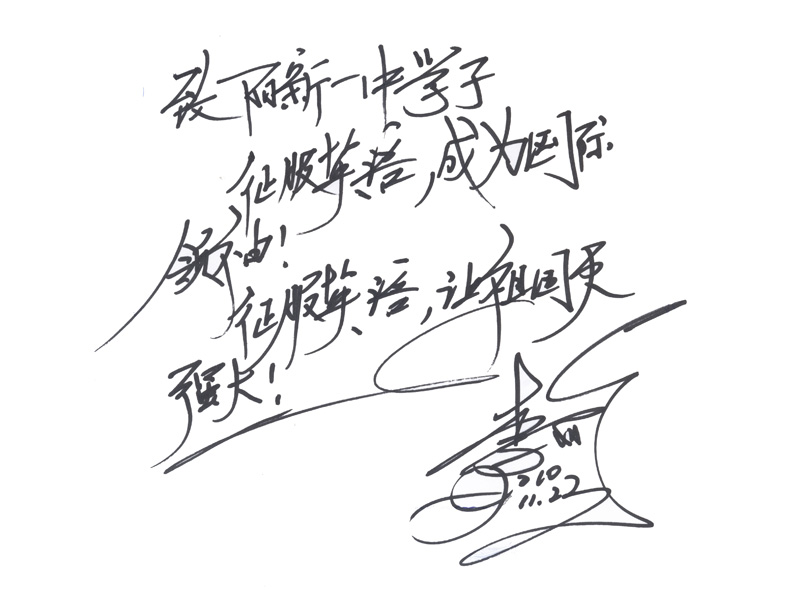 致丽新一中学子
征服英语，成为国际
领袖！
征服英语，让祖国更
强大！
2010
11.22